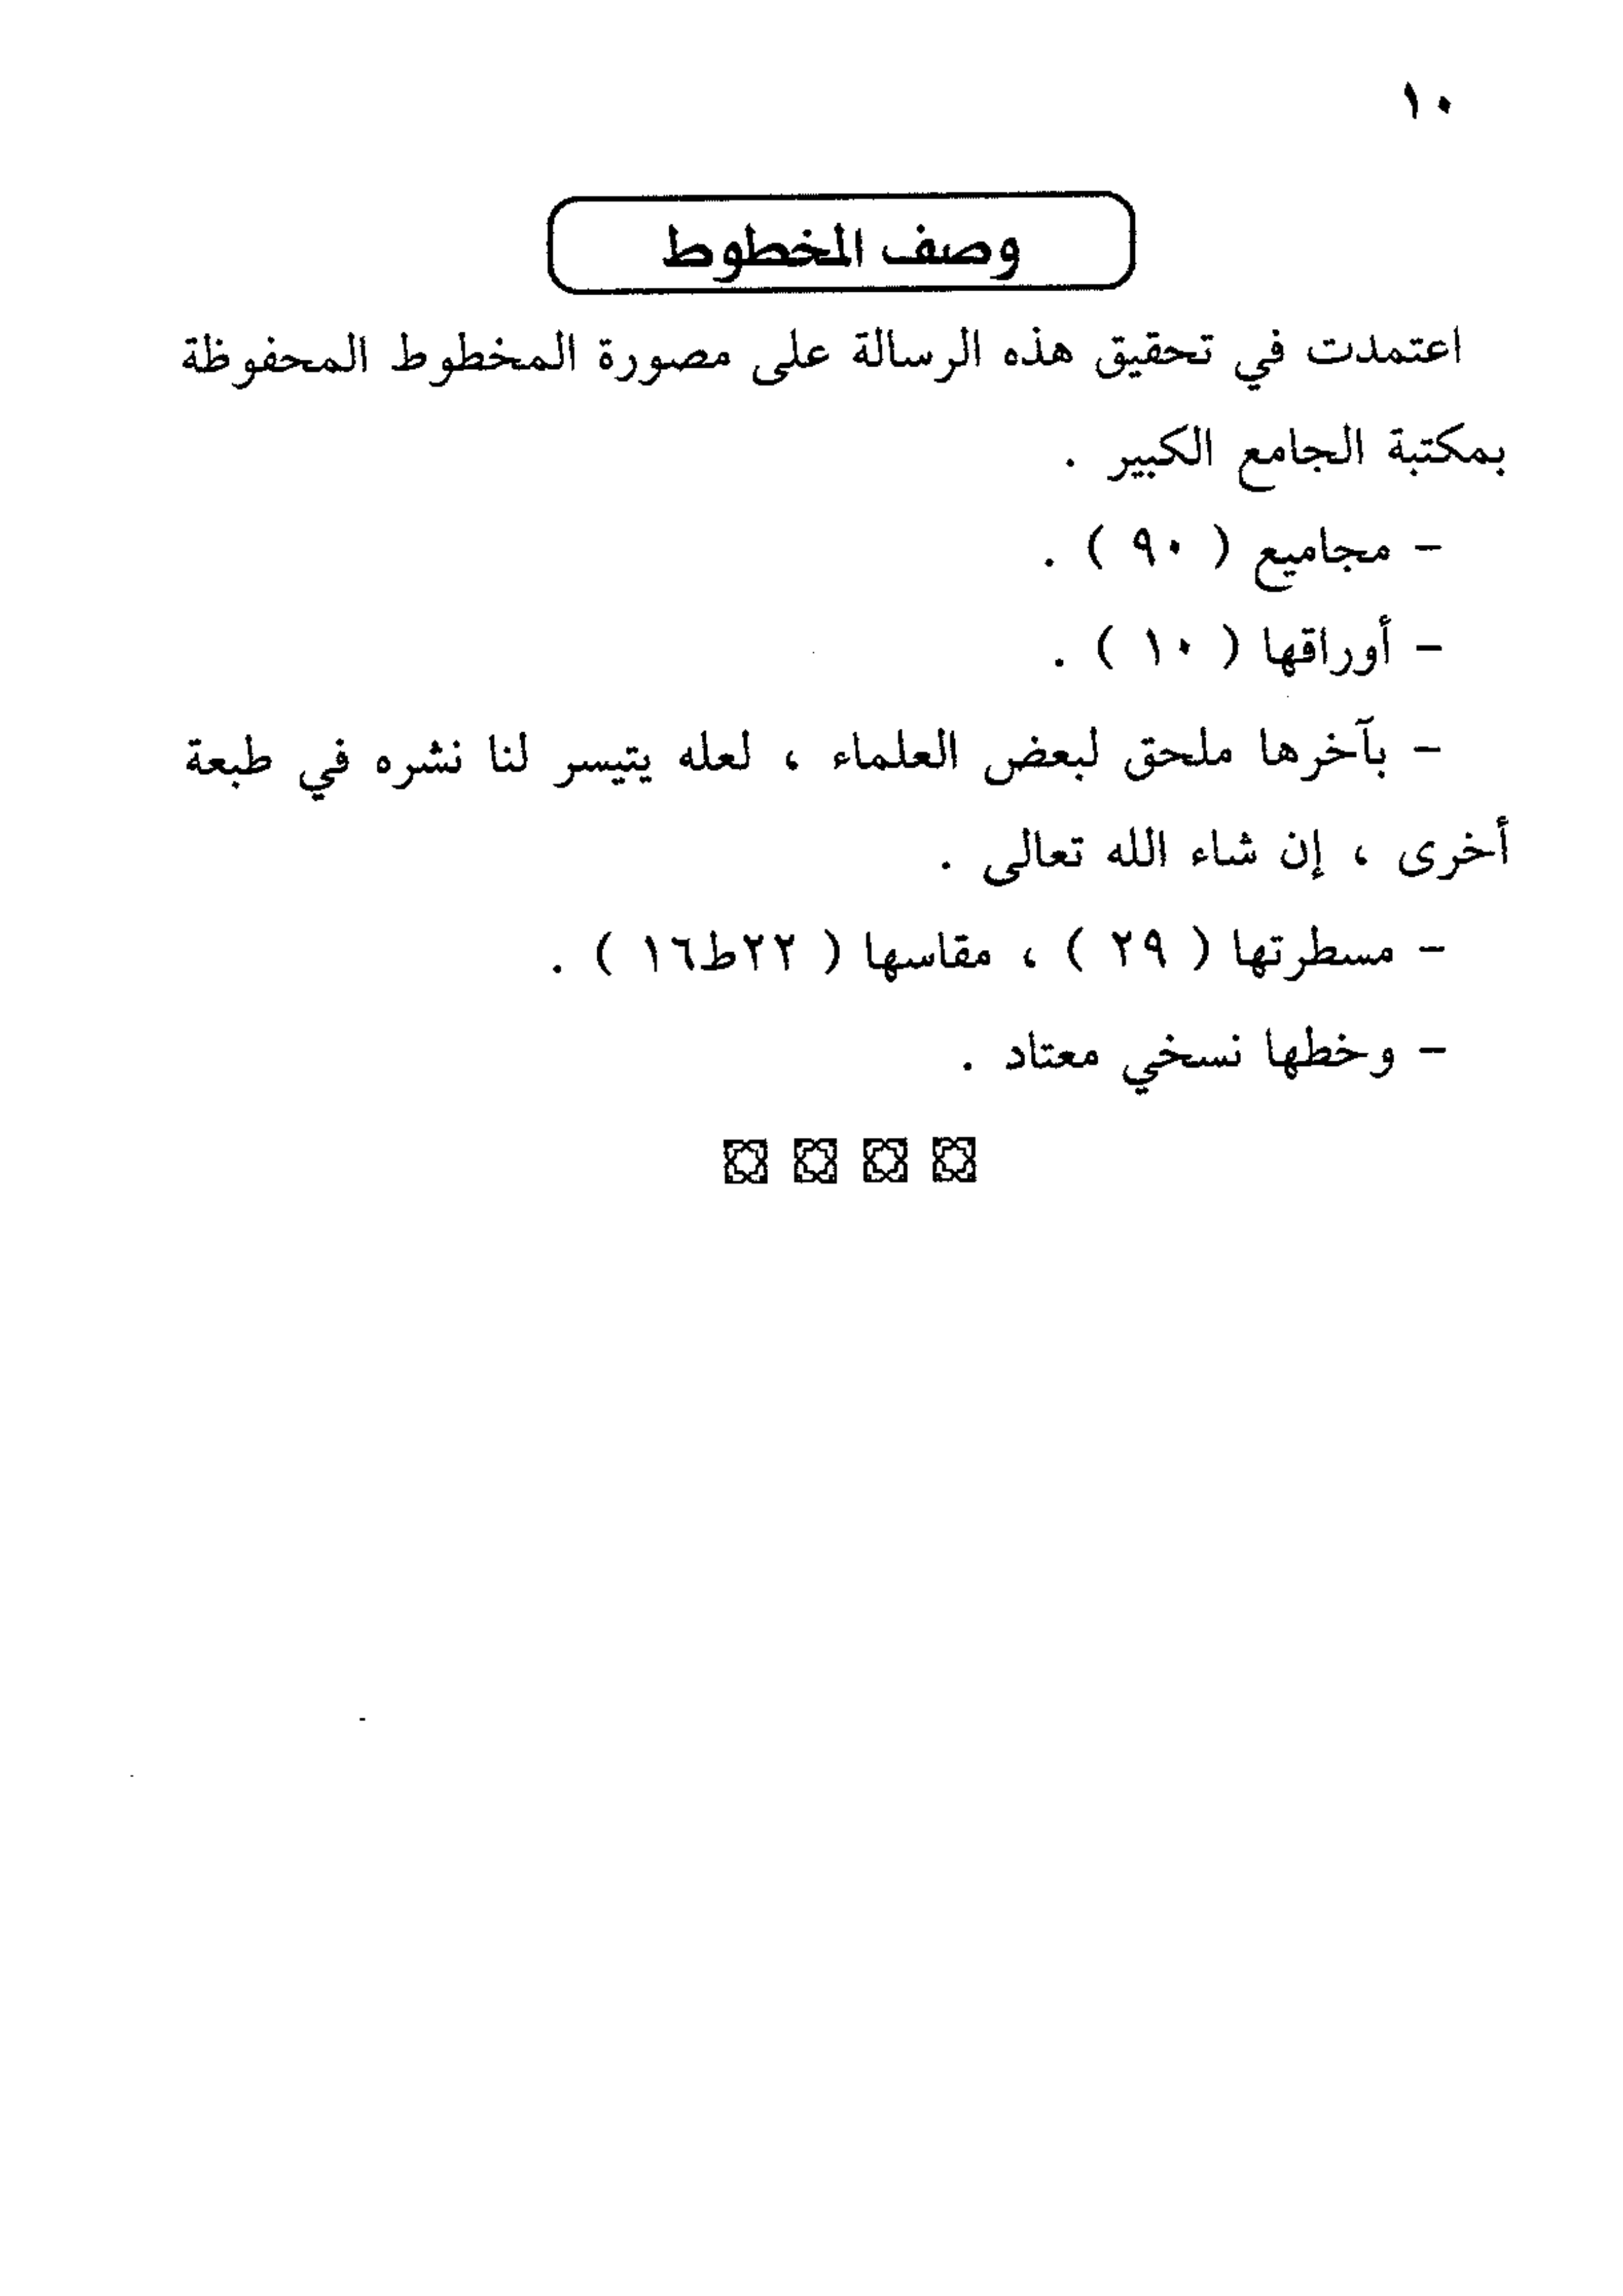 ١٠
وصف المخطوط
اعتمدت في تحقيق هذه الرسالة على مصورة المخطوط المحفوظة
بمكتبة الجامع الكبير .
– مجاميع ( ٩٠ ) .
– أوراقها ( ١٠ ) .
– بآخرها ملحق لبعض العلماء ، لعله يتيسر لنا نشره في طبعة
أخرى ، إن شاء الله تعالى .
– مسطرتها ( ٢٩ ) ، مقاسها ( ٢٢ط١٦ ) .
– وخطها نسخي معتاد .